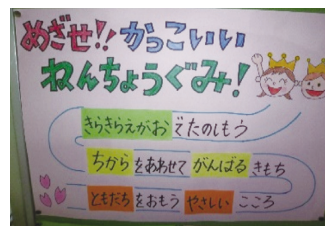 めざせ!!かっこいい
ねんちょうぐみ!
きらきらえがおでたのしもう
ちからをあわせてがんばるきもち
ともだちをおもうやさしいこころ